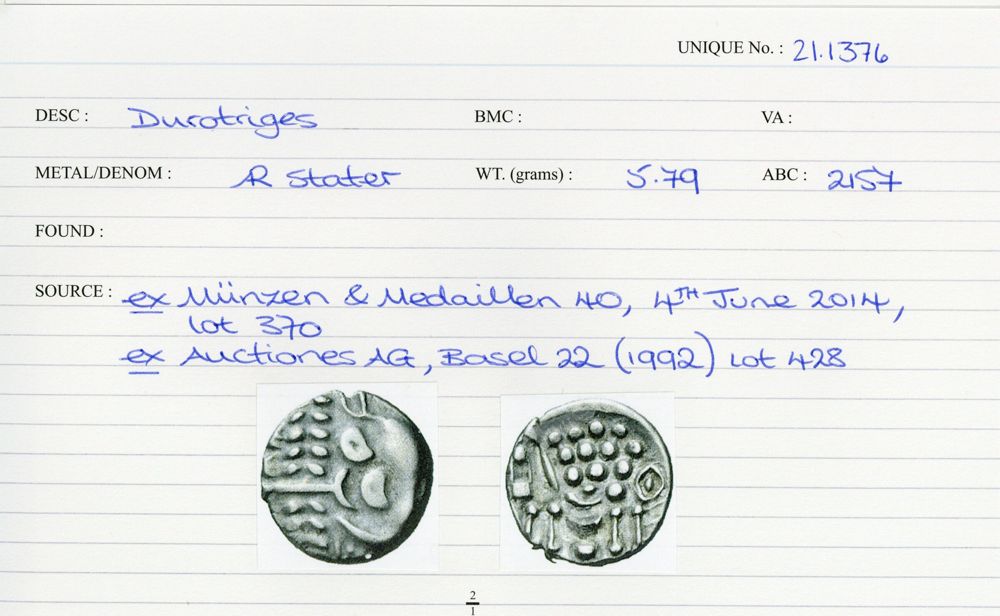 UNIQUE No. : 21.1376
DESC : Durotriges BMC : VA :
METAL/DENOM : AR Stater WT. (grams) : 5.79 ABC : 2157
FOUND :
SOURCE : ex Münzen & Medaillen 40, 4TH June 2014,
lot 370
ex Auctiones AG, Basel 22 (1992) lot 428
2
1